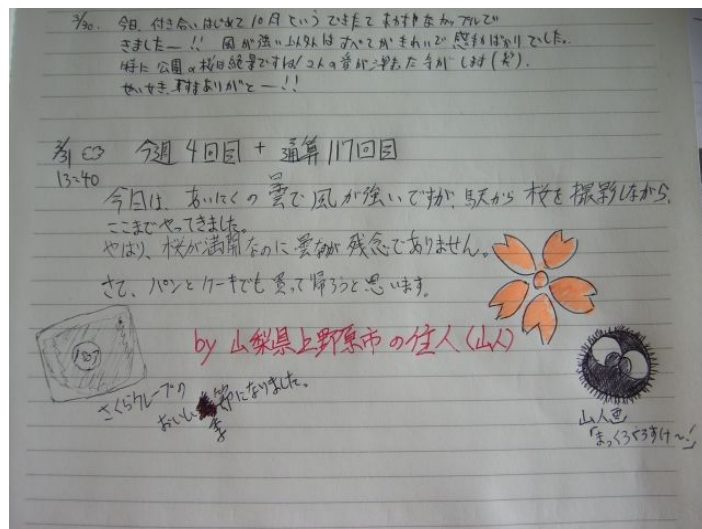 3/30. 今日、付き合いはじめて10月というできたてカップルで
きましたー!! 風が強い以外はすべてがきれいで感動ばかりでした。
特に公園の桜は絶景ですね! 2人の
ありがとー!!
3/31 今週4回目+通算117回目
13:40
今日は、あいにくの曇で風が強いですが、駅から桜を撮影しながら、
ここまでやってきました。
やはり、桜が満開なのに曇なのが残念でありません。
さて、パンとケーキでも買って帰ろうと思います。
by 山梨県上野原市の住人(山人)
さくらクレープの
おいしい季節になりました。
山人画
「まっくろくろすけ〜!」